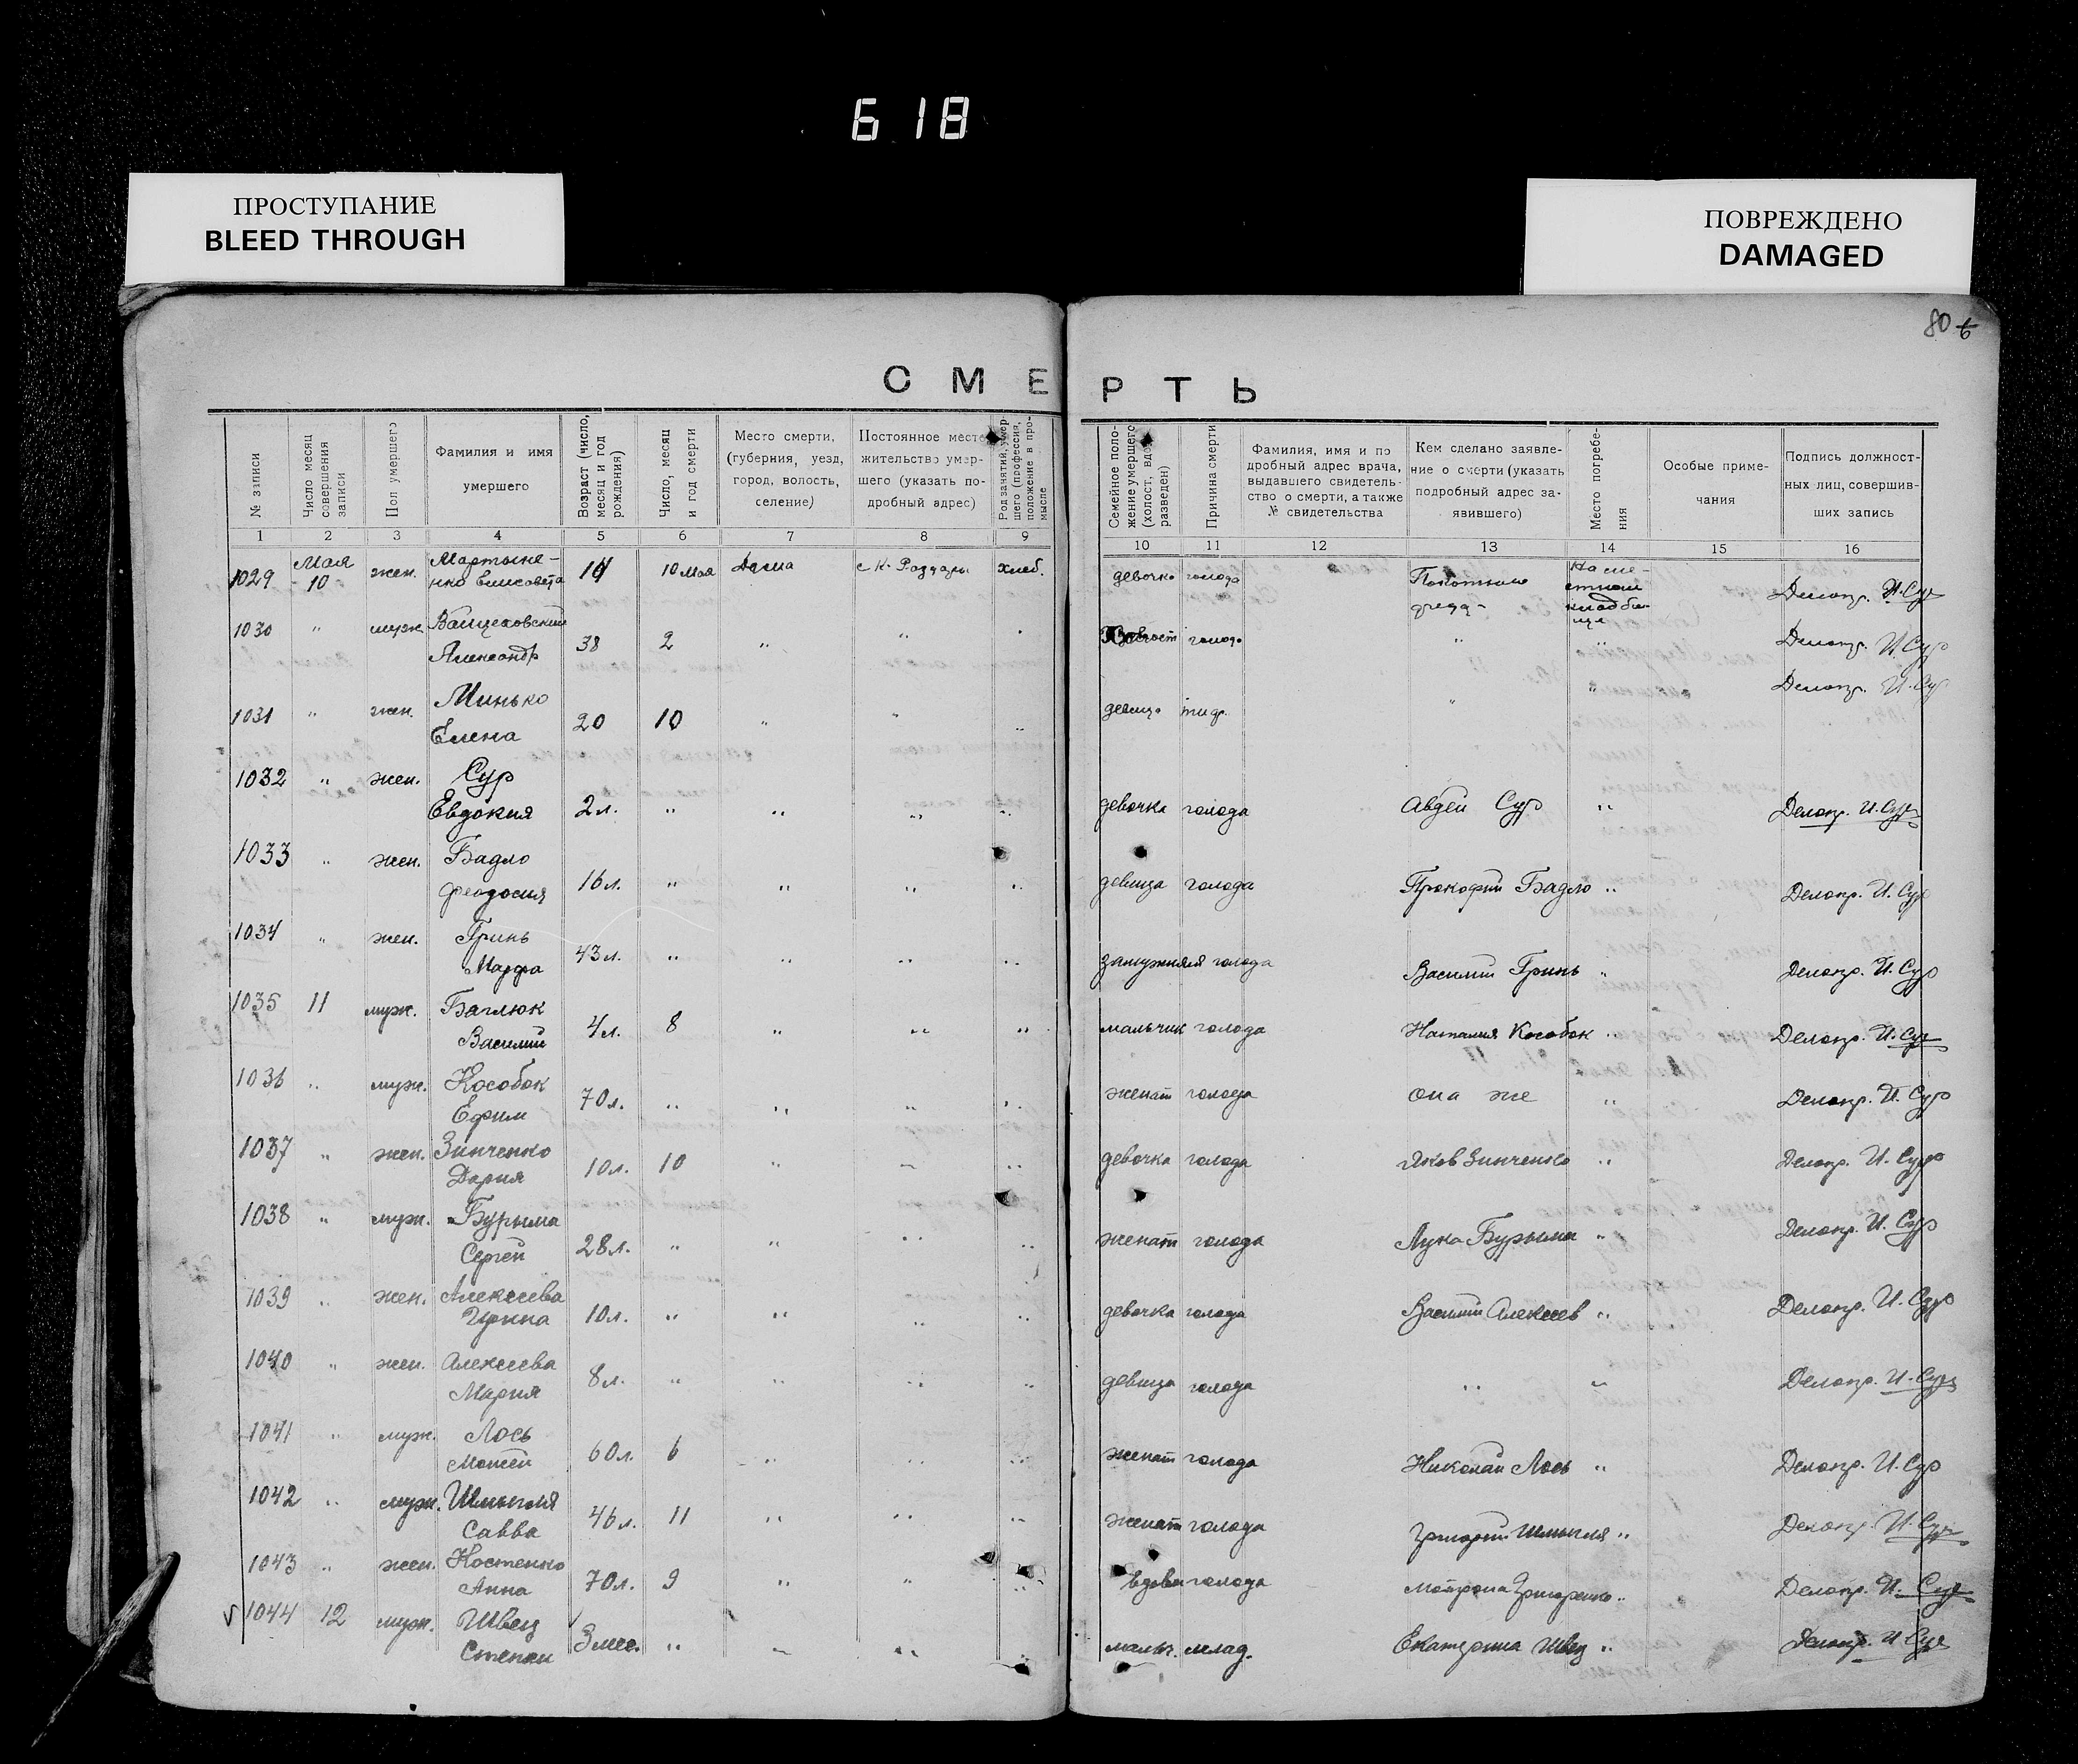 618
ПРОСТУПАНИЕ
BLEED THROUGH
ПОВРЕЖДЕНО
DAMAGED
80
СМЕРТЬ
№ записи
Число месяц совершения записи
Пол умершего
Фамилия и имя умершего
Возраст (число, месяц и год рождения)
Число, месяц и год смерти
Место смерти, (губерния, уезд, город, волость, селение)
Постоянное место жительство умершего (указать подробный адрес)
Род занятий умершего (профессия, положение в промысле
Семейное положение умершего (холост, вдов, разведен)
Причина смерти
Фамилия, имя и подробный адрес врача, выдавшего свидетельство о смерти, а также № свидетельства
Кем сделано заявление о смерти (указать подробный адрес заявившего)
Место погребения
Особые примечания
Подпись должностных лиц, совершивших запись
1 2 3 4 5 6 7 8 9 10 11 12 13 14 15 16
1029 Мая 10 жен. Мартыненко Елисавета 10 Мая Дома хлеб. девочка голода На местном кладбище Делопр. И. Сур
1030 " муж Александр 38 2 " " голода " " Делопр. И. Сур
1031 " жен. Минько Елена 20 10 " " " девица " " Делопр. И. Сур
1032 " жен. Сур Евдокия 2 л. " " " " девочка голода Авдей Сур " Делопр. И. Сур
1033 " жен. Бадло Феодосия 16 л. " " " " девица голода Прокофий Бадло " Делопр. И. Сур
1034 " жен. Гринь Марфа 43 л. " " " " замужняя голода Василий Гринь " Делопр. И. Сур
1035 11 муж. Баглюк Василий 4 л. 8 " " " мальчик голода Наталия Кособок " Делопр. И. Сур
1036 " муж. Кособок Ефим 70 л. " " " " женат голода она же " Делопр. И. Сур
1037 " жен. Зинченко Дария 10 л. 10 " " " девочка голода Яков Зинченко " Делопр. И. Сур
1038 " муж. Бурыма Сергей 28 л. " " " " женат голода Лука Бурыма " Делопр. И. Сур
1039 " жен. Алексеева Ирина 10 л. " " " " девочка голода Василий Алексеев " Делопр. И. Сур
1040 " жен. Алексеева Мария 8 л. " " " " девица голода " " Делопр. И. Сур
1041 " муж. Лось Моисей 60 л. 6 " " " женат голода Николай Лось " Делопр. И. Сур
1042 " муж. Шмыгля Савва 46 л. 11 " " " женат голода Григорий Шмыгля " Делопр. И. Сур
1043 " жен. Костенко Анна 70 л. 9 " " " вдова голода Матрона Григоренко " Делопр. И. Сур
1044 12 муж. Швец Степан 3 мес. " " " мальч. млад. Екатерина Швец " Делопр. И. Сур